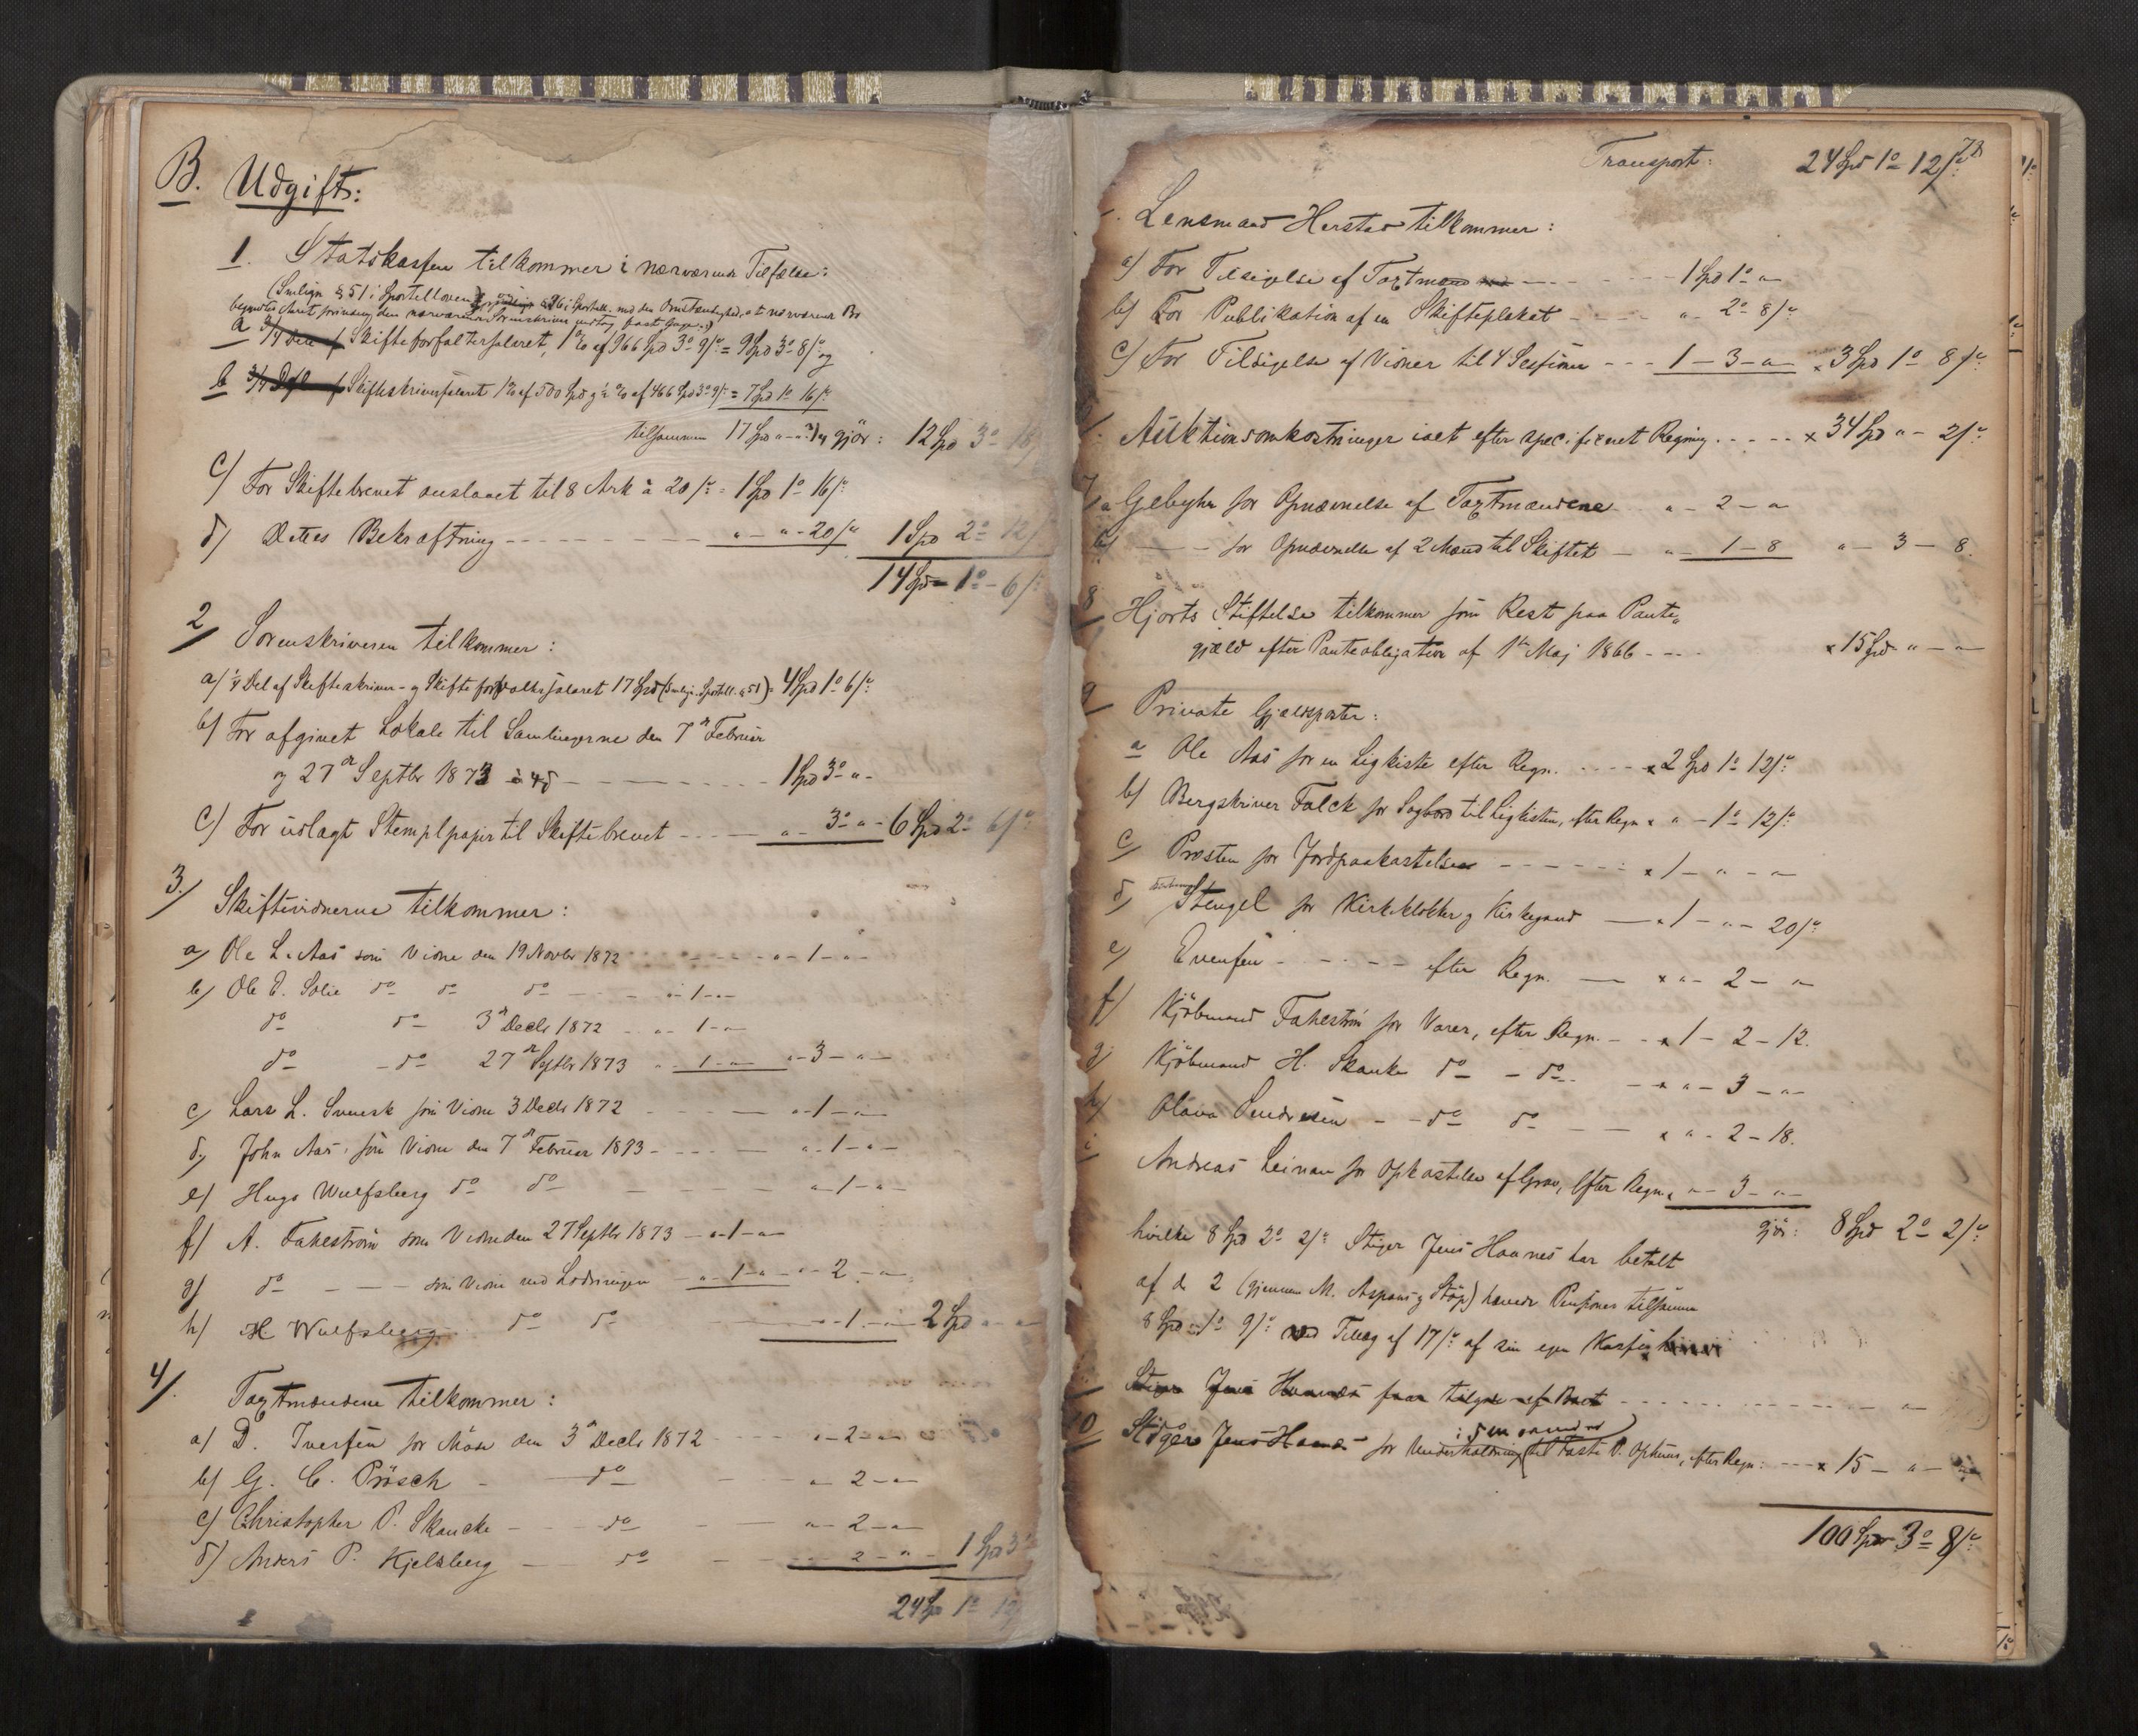 B. Udgift:
1. Statskassen tilkommer i nærværende Tilfælde:
(Smlign § 51 i Sportelloven
a Skifteforfaltersalaret, 1 % af 966 Spd 3 º 9 /ˢ: = 9 Spd 3 º 8 /ˢ: og
b Skifteskriversalaret 1 % af 500 Spd og ½ % af 466 Spd 3 º 9 /ˢ: = 7 Spd 1 º 16 /ˢ:
tilsammen 17 Spd " - " ¾ gjör: 12 Spd 3 º 18
c) For Skiftebrevet anslaaet til 8 Ark à 20 /ˢ: = 1 Spd 1 º 16 /ˢ:
d) Dettes Bekræftning - - - " - " - 20 /ˢ 1 Spd 2 º 12 /
14 Spd - 1 º - 6 /ˢ:
2/ Sorenskriveren tilkommer:
a) ¼ Del af Skifteskriver- og Skifteforvaltersalaret 17 Spd (Smlign. Sportell. § 51) = 4 Spd 1 º 6 /ˢ:
b) For afgivet Lokale til Samlingerne den 7ᵈᵉ Februar
og 27ᵈᵉ Septbr 1873 à 4 º - - - 1 Spd 3 º " -
c) For udlagt Stemplpapir til Skiftebrevet - - - " - 3 º - " - 6 Spd 2 º 6 /ˢ:
3./ Skiftevidnerne tilkommer:
a) Ole L. Aas som Vidne den 19 Novbr 1872 - - - " - 1 - " -
b) Ole E. Solie dº dº dº - - - " - 1 - " -
dº dº 3ᵈᵉ Decbr 1872 - - " - 1 - "
dº - dº 27ᵈᵉ Septbr 1873 " - 1 - " " - 3 - " -
c) Lars L. Svensk som Vidne 3 Decbr 1872 - - - " - 1 - " -
d) John Aas som Vidne den 7ᵈᵉ Februar 1873 - - - " - 1 - " -
e) Hugo Wulfsberg dº dº - - - " - 1 - " -
f) A. Faheström som Vidne den 27 Septbr 1873 - " - 1 - "
g) dº - - - som Vidne ved Lodningen - " - 1 - " " - 2 - " -
h) H Wulfsberg dº dº " - 1 - " - 2 Spd " - "
4/. Taxtmændene tilkommer:
a) D. Iversen for Möde den 3ᵈᵉ Decbr 1872 - - - " - 2 - "
b) G. C. Prösch - dº - - " - 2 - "
c) Christopher P. Skancke - - dº - - " - 2 - "
d) Anders P. Kjelsberg - dº - - - 2 - " - 1 Spd 3 º
24 Spd 1 º 12
Transport: 24 Spd 1 º 12 /ˢ:
Lensmand Harstad tilkommer:
a) For Tilsigelse af Taxtmænd - - - 1 Spd 1 º "
b) For Publikation af en Skifteplakat - - - " - 2 º 8 /ˢ:
c) For Tilsigelse af Vidner til 4 Sessioner - - - 1 - 3 - " x 3 Spd 1 º 8 /ˢ:
Auktionsomkostninger iset efter specificeret Regning - - - x 34 Spd " - 2 /ˢ:
7/a Gebyhr for Opnævnelse af Taxtmændene " - 2 - "
b) - - for Opnævnelse af 2 Mænd til Skiftet - " - 1 - 8 " - 3 - 8.
8/ Hjorts Stiftelse tilkommer som Rest paa Pante„
gjæld efter Panteobligation af 1ˢᵗᵉ Maj 1866 - - - x 15 Spd " - "
9/ Private Gjældsposter:
a Ole Aas for en Ligkiste efter Regn. - - - x 2 Spd 1 º 12 /ˢ:
b) Bergskriver Falck for Sagbord til Ligkisten, efter Regn x " - 1 º 12 /ˢ:
c) Presten for Jordpaakastelsen - - - x 1 - " - "
d) Stengel for Kirkeklokker og Kirkegaard - x 1 - " - 20 /ˢ:
e) Evensen - - - efter Regn. - x " - 2 - "
f) Kjöbmand Faheström for Varer, efter Regn. - - x 1 - 2 - 12.
g) Kjöbmand H. Skanke dº - dº - - x " - 3 - "
h) Olava Sendresen - - dº dº - - x " - 2 - 18.
i Andreas Leinan for Opkastelse af Grav, Efter Regn x " - 3 - "
gjör: 8 Spd 2 º 2 /ˢ:
hvilke 8 Spd 2 º 2 /ˢ: Stiger Jens Haanes har betalt
af de 2 (gjennem M. Aspaas og Stöp) hævede Pensioner tilsammen
8 Spd - 1 º 9 /ˢ: med Tillæg af 17 /ˢ: af sin egen Kasse
Stiger Jens Haanes faar tilgode af Boet - - - " -
10 Stiger Jens Haanes for Underholdning i 5 Maaneder til Faste P. Ophuus, efter Regn: - - x 15 - " -
100 Spd 3 º 8 /ˢ